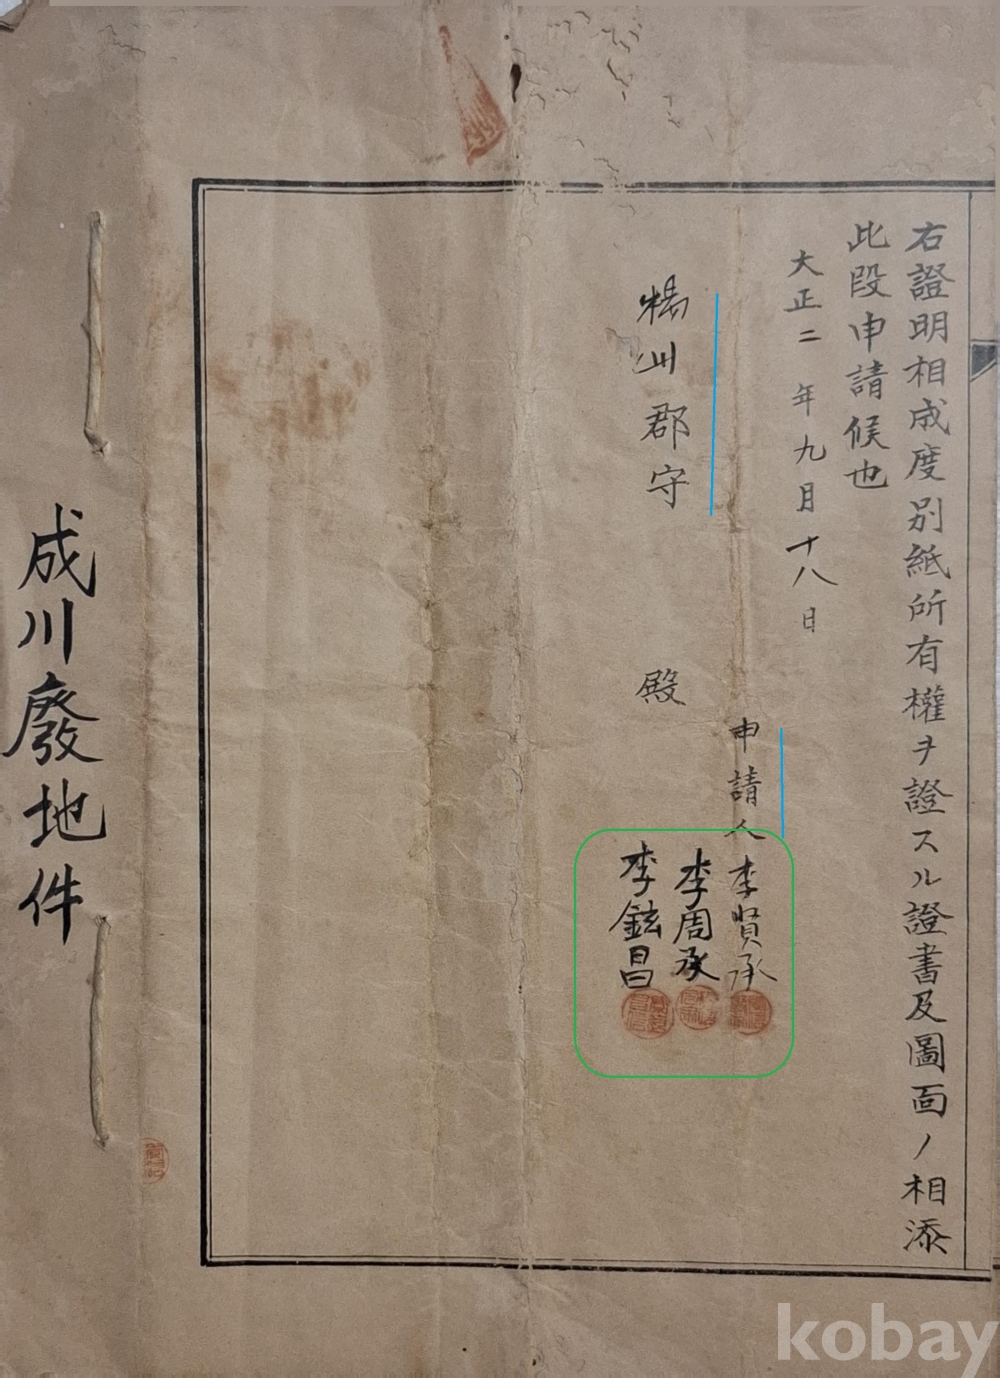 右證明相成度別紙所有權ヲ證スル證書及圖面ノ相添
此段申請候也
大正二年九月十八日
申請人 李賢承
李周承
李鉉昌
楊州郡守 殿
成川廢地件
kobay